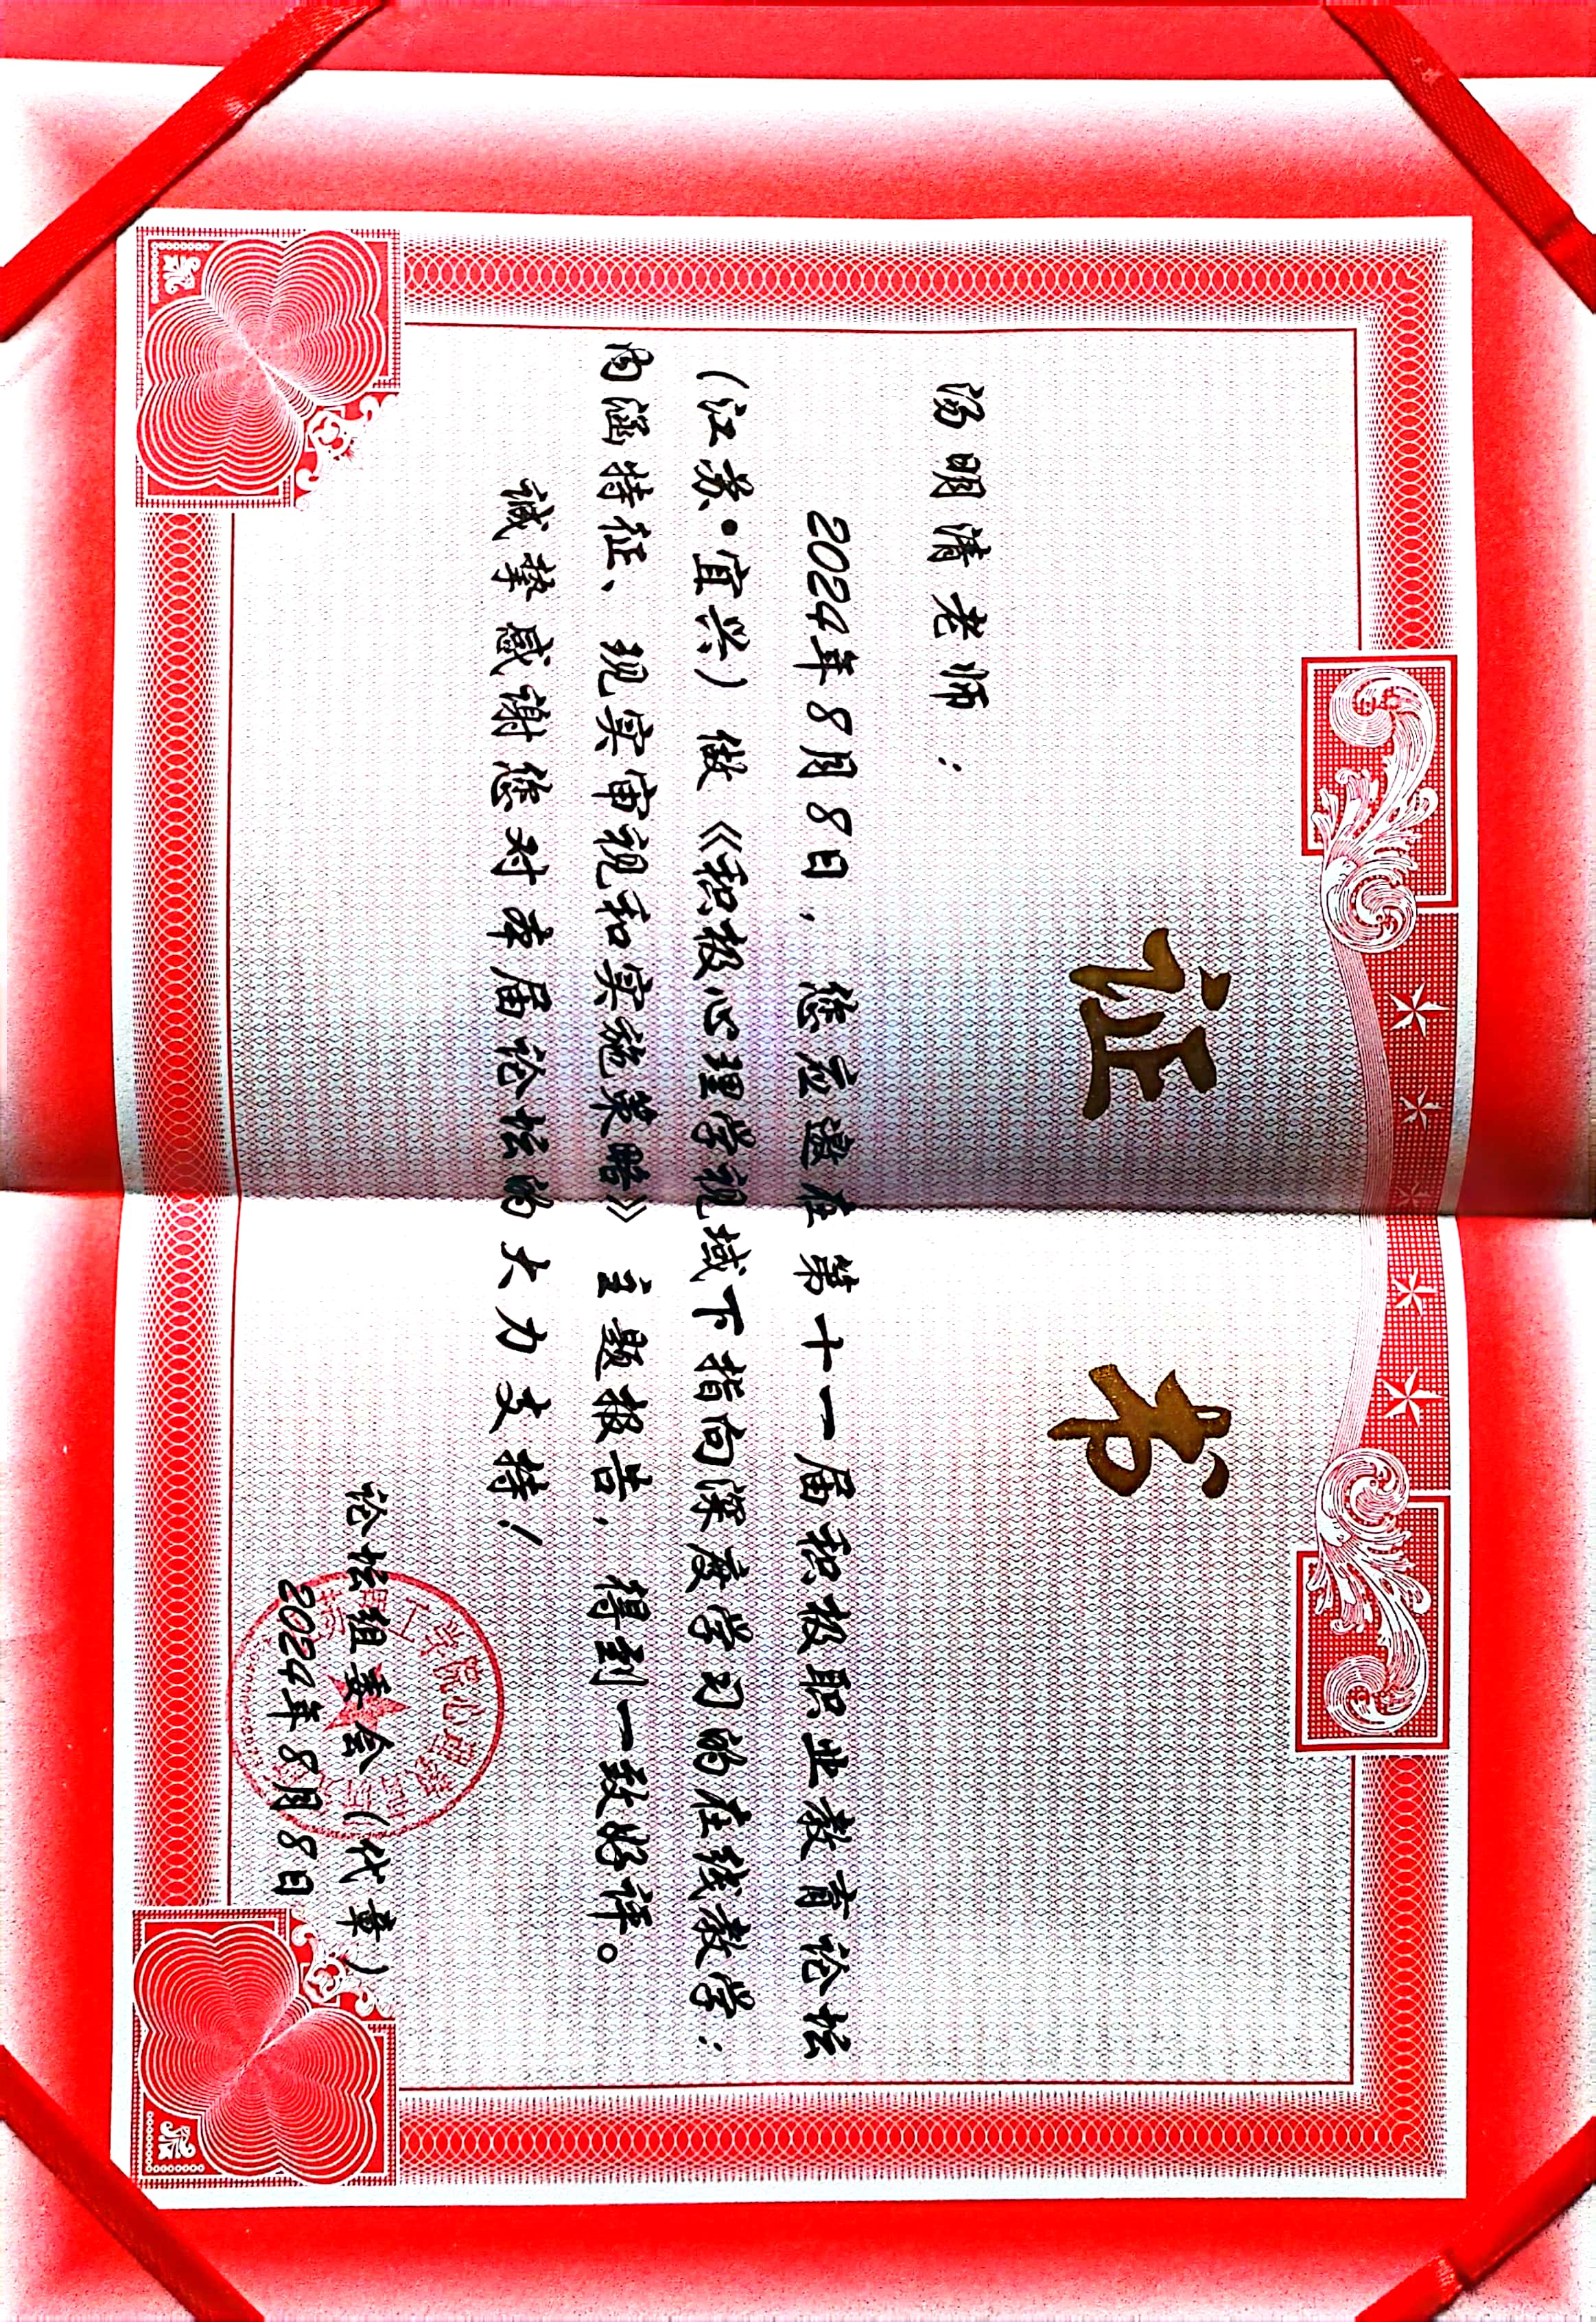 证书
汤明清老师：
2024年8月8日，您应邀在第十一届积极职业教育论坛
（江苏·宜兴）做《积极心理学视域下指向深度学习的在线教学：
内涵特征、现实审视和实施策略》主题报告，得到一致好评。
诚挚感谢您对本届论坛的大力支持！
论坛组委会（代章）
2024年8月8日
理工学院心理教